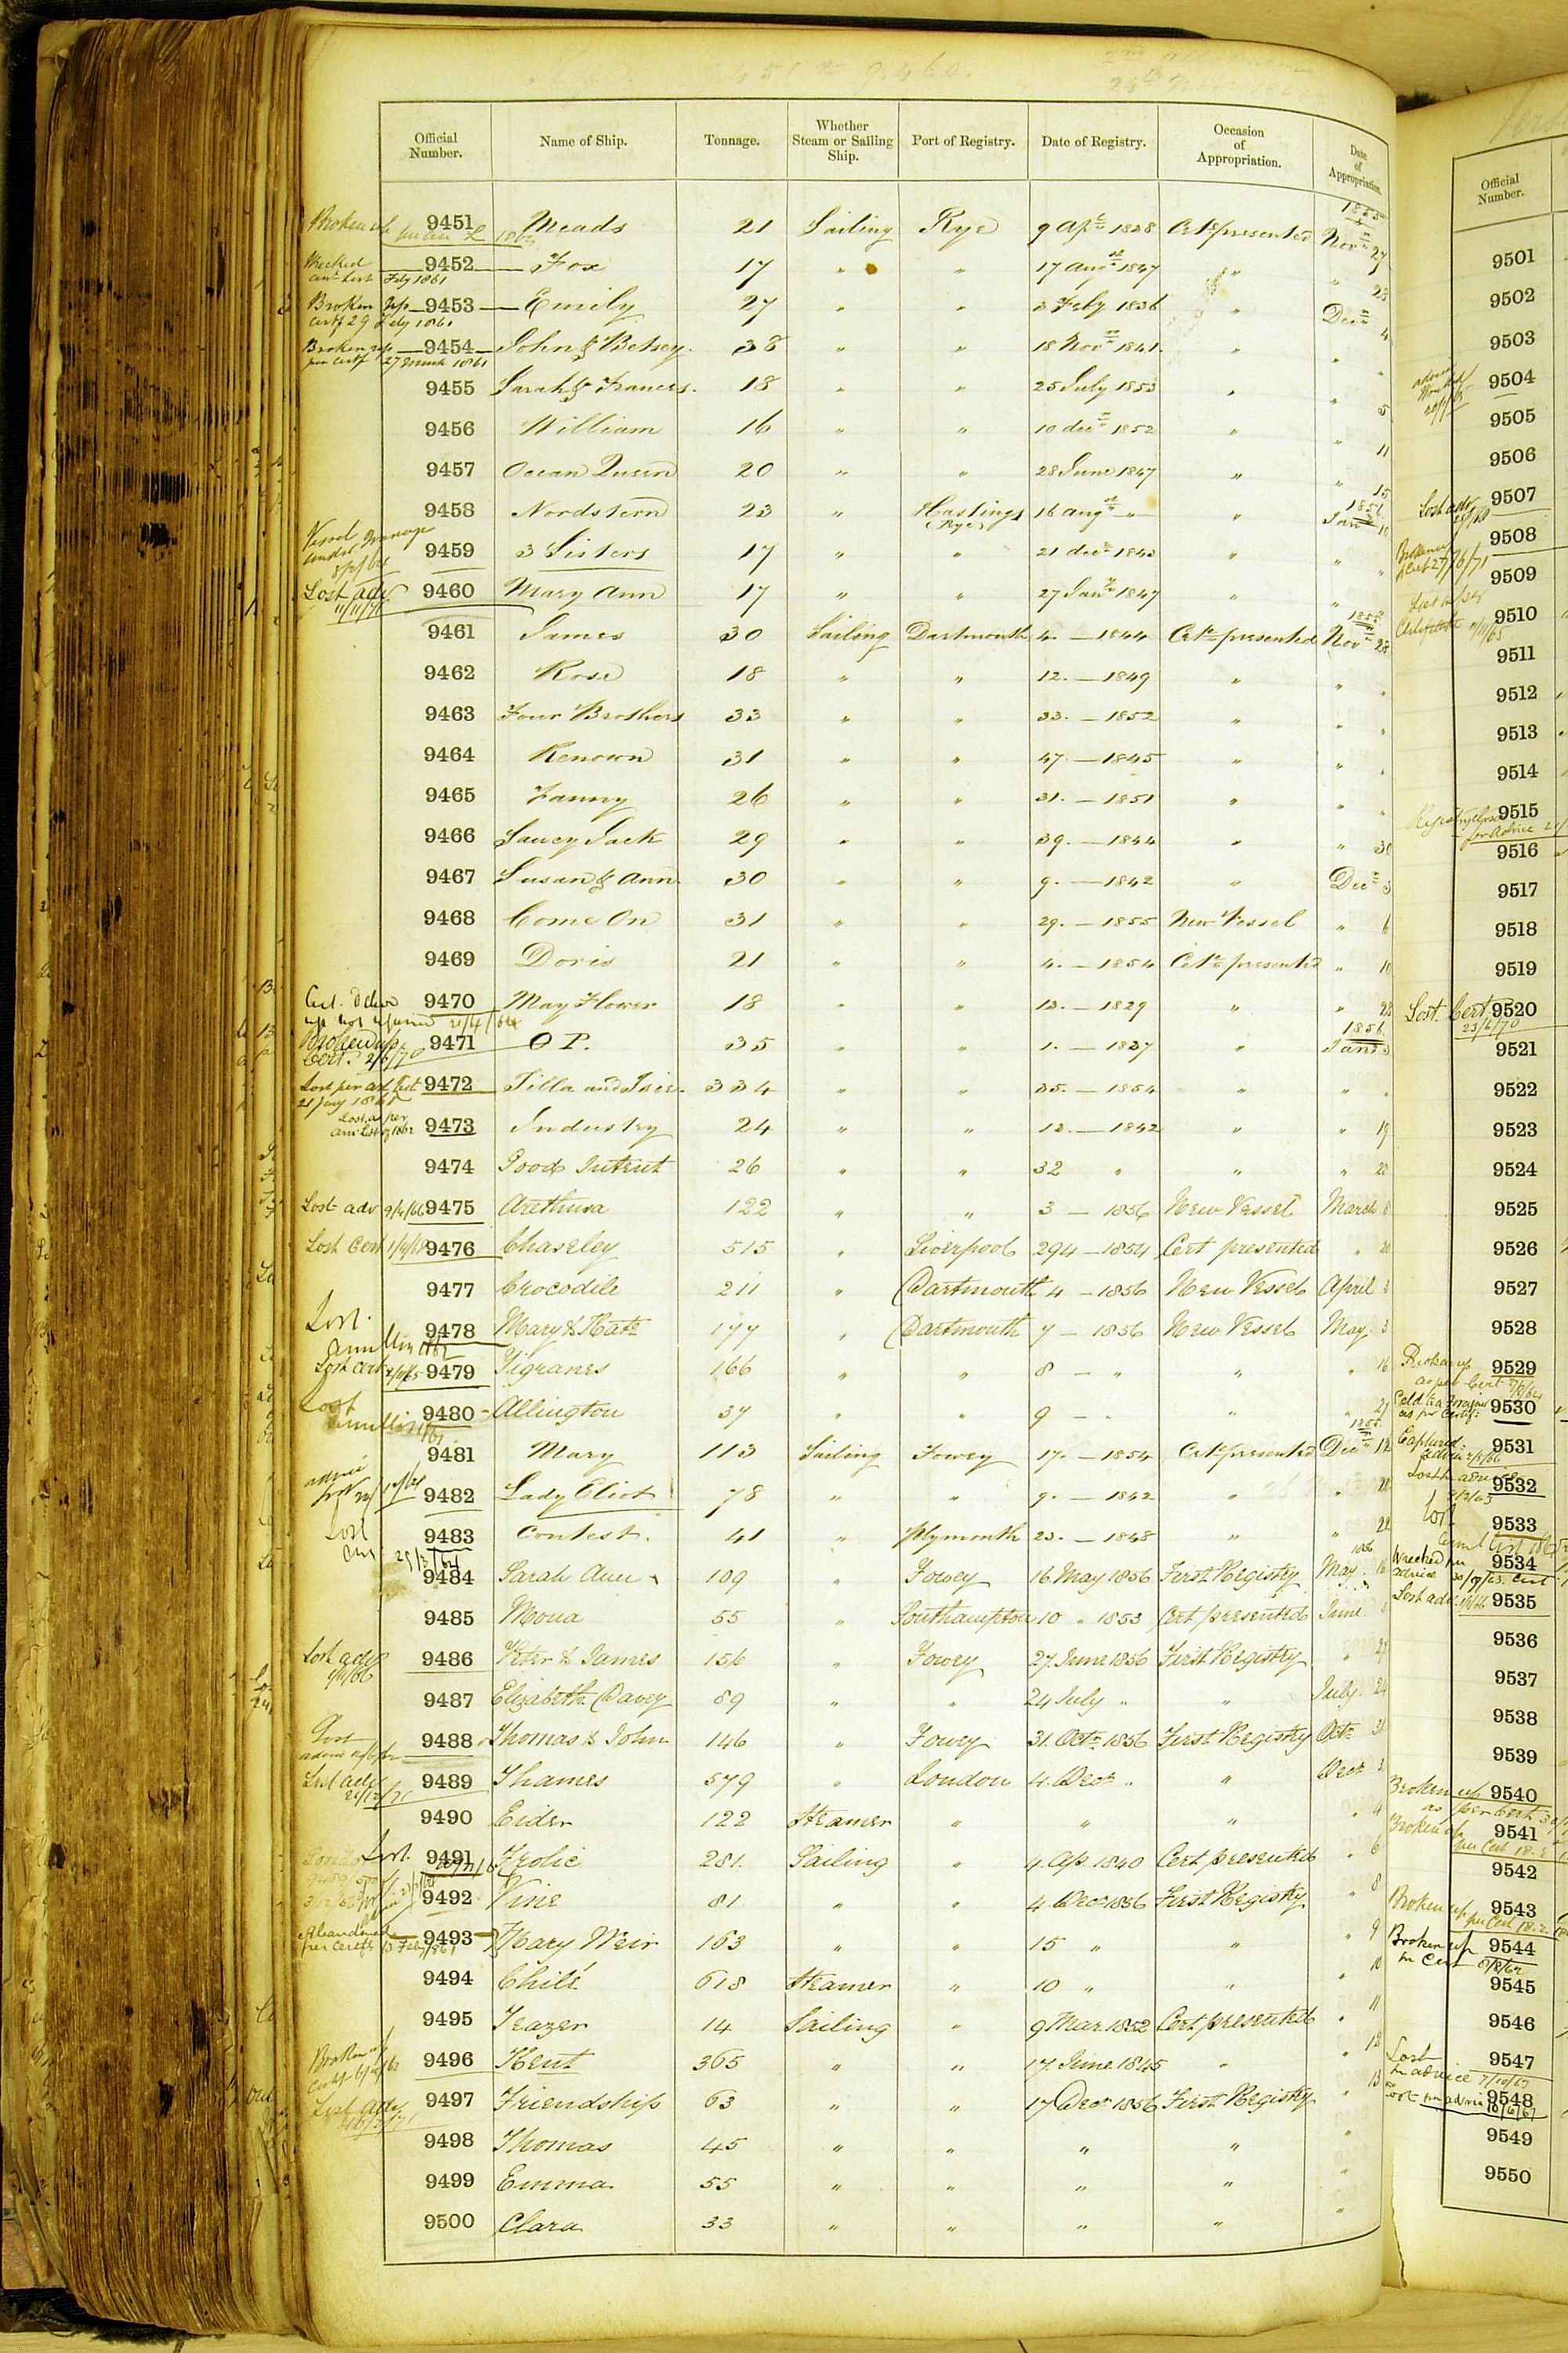 Official Number. Name of Ship. Tonnage. Whether Steam or Sailing Ship. Port of Registry. Date of Registry. Occasion of Appropriation. Date of Appropriation.
1855
Broken up 9451 Meads 21 Sailing Rye 9 Apl 1828 Certe presented Novr 27
Wrecked 9452 Fox 17 " " 17 Augt 1847 " " 28
Ann List Feby 1861
Broken Up 9453 Emily 27 " " 3 Feby 1836 " Decr 4
Certf 29 Feby 1861
Broken up 9454 John & Betsey 38 " " 18 Novr 1841 " " "
per Certf 27 March 1861
9455 Sarah & Frances 18 " " 25 July 1853 " " 5
9456 William 16 " " 10 decr 1852 " " 11
9457 Ocean Queen 20 " " 28 June 1847 " " 15
1856
9458 Nordstern 23 " Hastings (Rye) 16 augt " " Jany 10
Vessel under 9459 3 Sisters 17 " " 21 decr 1843 " " "
Lost adv 11/11/76 9460 Mary Ann 17 " " 27 Jany 1847 " " "
1855
9461 James 30 Sailing Dartmouth 4. — 1844 Certe presented Novr 28
9462 Rose 18 " " 12. — 1849 " " "
9463 Four Brothers 33 " " 33. — 1852 " " "
9464 Renown 31 " " 47. — 1845 " " "
9465 Fanny 26 " " 31. — 1851 " " "
9466 Saucy Jack 29 " " 39. — 1844 " " 30
9467 Susan & Ann 30 " " 9. — 1842 " Decr 3
9468 Come On 31 " " 29. — 1855 New Vessel " 6
9469 Doris 21 " " 4. — 1854 Certe presented " 10
9470 May Flower 18 " " 13. — 1829 " " 22
1856
Broken up Cert. 9471 O P. 35 " " 1. — 1837 " Jany 3
Lost per Ad Cert 9472 Tilla and 334 " " 35. — 1854 " " "
21 Jany 1861
Lost as per Ann List of 1862 9473 Industry 24 " " 13. — 1842 " " 19
9474 Good Intent 26 " " 32 " " " 28
Lost adv 9/4/66 9475 Arethusa 122 " " 3 — 1856 New Vessel March 8
Lost Cert 9476 Chaseley 515 " Liverpool 294 — 1854 Cert presented " 20
9477 Crocodile 211 " Dartmouth 4 — 1856 New Vessel April 3
Lost. 9478 Mary & Kate 177 " Dartmouth 7 — 1856 New Vessel May 3
Lost Cert 9479 Tigranes 166 " " 8 — " " " 16
Lost 9480 Allington 37 " " 9 — " " " 27
1855
9481 Mary 113 Sailing Fowey 17. — 1854 Certe presented Decr 12
9482 Lady Eliot 78 " " 9. — 1842 " " 20
Lost 9483 Contest. 41 " Plymouth 23. — 1848 " " 22
29/3/64
1856
9484 Sarah Ann 109 " Fowey 16 May 1856 First Registry May 16
9485 Mona 55 " Southampton 10 " 1853 Cert presented June 6
Lost adv 9486 Peter & James 156 " Fowey 27 June 1856 First Registry " 27
9487 Elizabeth Davey 89 " " 24 July " " July 24
Lost 9488 Thomas & John 146 " Fowey 31. Octr 1856 First Registry Octr 31
9489 Thames 579 " London 4. Decr " " Decr 3
9490 Eider 122 Steamer " " " " 4
Lost. 9491 Frolic 281. Sailing " 4. Ap 1840 Cert presented " 6
9492 Vine 81. " " 4 Decr 1856 First Registry " 8
Abandoned 9493 Mary Weir 163 " " 15 " " " 9
9494 Chilé 618 Steamer " 10 " " " 10
9495 Teazer 14 Sailing " 9 Mar 1852 Cert presented " 11
Broken up 9496 Kent 365 " " 17. June 1845 " " 12
Lost adv 9497 Friendship 63 " " 17 Decr 1856 First Registry " 13
9498 Thomas 45 " " " " "
9499 Emma 55 " " " " "
9500 Clara 33 " " " " "
Official Number.
9501
9502
9503
9504
9505
9506
Lost adv 9507
Broken up 9508
9509
9510
9511
9512
9513
9514
9515
9516
9517
9518
9519
Lost. Cert 9520
23/6/70
9521
9522
9523
9524
9525
9526
9527
9528
Broken up 9529
as per Cert
9530
Captured 9531
Lost adv 9532
Lost 9533
Wrecked 9534
Lost adv 9535
9536
9537
9538
9539
Broken up 9540
as per Cert
Broken up 9541
9542
Broken up per Cert 9543
Broken up 9544
9545
9546
Lost 9547
Lost per advice 9548
9549
9550